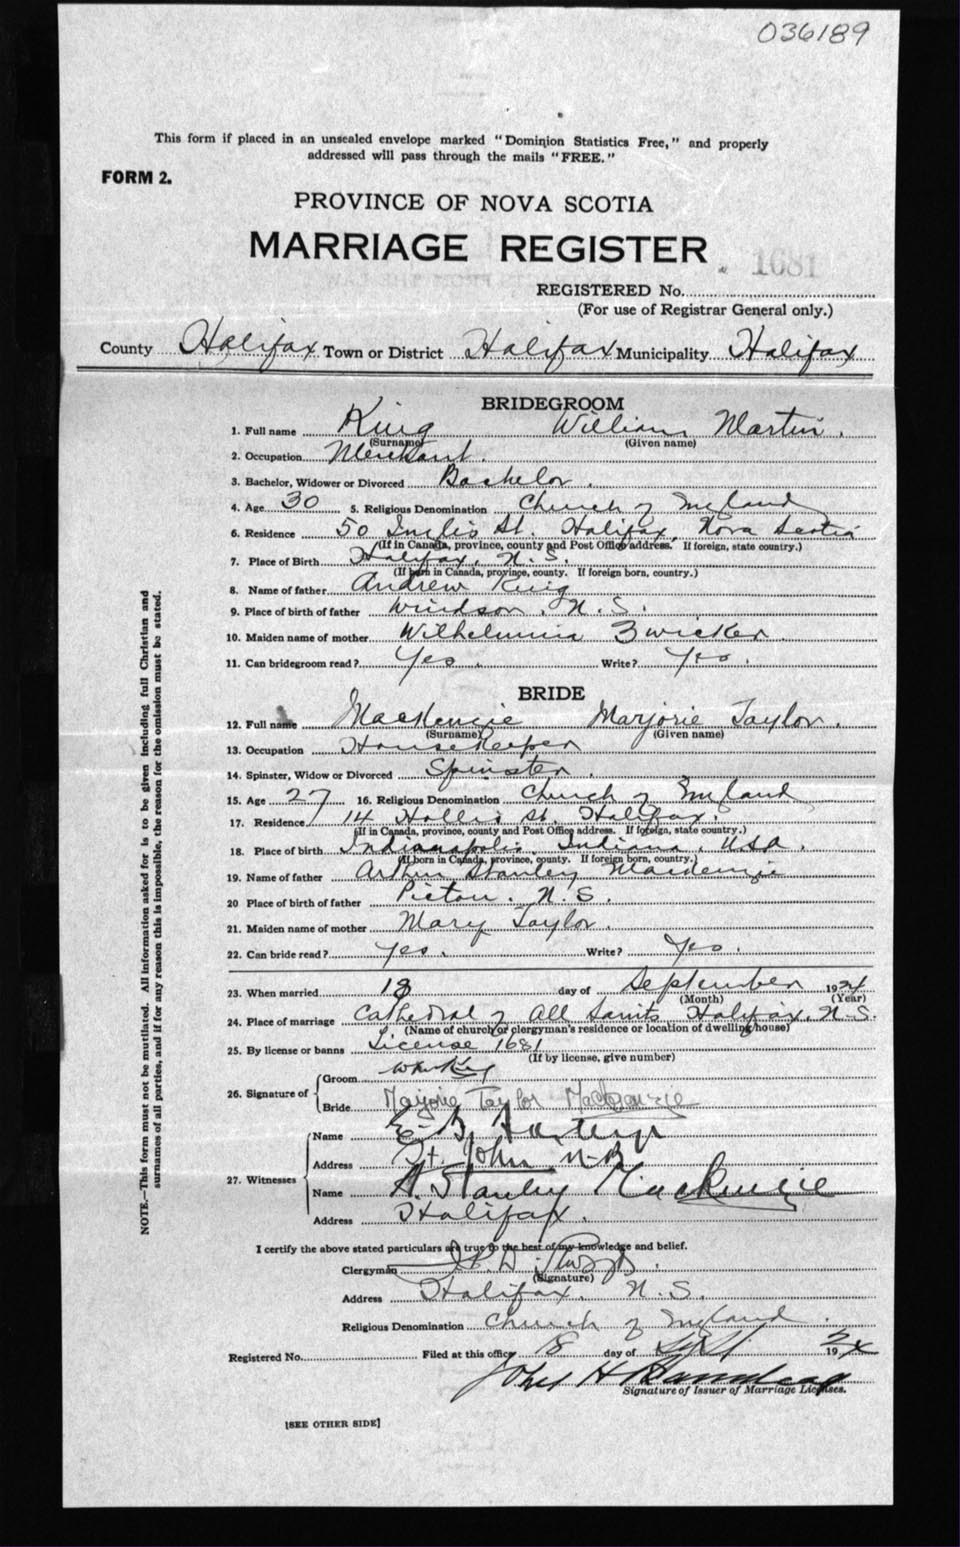 036189
This form if placed in an unsealed envelope marked "Dominion Statistics Free," and properly
addressed will pass through the mails "FREE."
FORM 2.
PROVINCE OF NOVA SCOTIA
MARRIAGE REGISTER
1681
REGISTERED No.
(For use of Registrar General only.)
County Halifax Town or District Halifax Municipality Halifax
BRIDEGROOM
1. Full name King William Martin.
(Surname) (Given name)
2. Occupation Merchant.
3. Bachelor, Widower or Divorced Bachelor.
4. Age 30 5. Religious Denomination Church of England
6. Residence 50 Inglis St. Halifax, Nova Scotia
(If in Canada, province, county and Post Office address. If foreign, state country.)
7. Place of Birth Halifax, N. S.
(If born in Canada, province, county. If foreign born, country.)
8. Name of father Andrew King
9. Place of birth of father Windsor. N. S.
10. Maiden name of mother Wilhelmina Zwicker
11. Can bridegroom read? Yes. Write? Yes.
BRIDE
12. Full name MacKenzie Marjorie Taylor.
(Surname) (Given name)
13. Occupation Housekeeper
14. Spinster, Widow or Divorced Spinster.
15. Age 27 16. Religious Denomination Church of England
17. Residence 14 Hollis St. Halifax.
(If in Canada, province, county and Post Office address. If foreign, state country.)
18. Place of birth Indianapolis. Indiana. USA.
(If born in Canada, province, county. If foreign born, country.)
19. Name of father Arthur Stanley MacKenzie
20 Place of birth of father Pictou. N. S.
21. Maiden name of mother Mary Taylor.
22. Can bride read? Yes. Write? Yes.
23. When married day of September 1924
(Month) (Year)
24. Place of marriage Cathedral of All Saints Halifax. N. S.
(Name of church or clergyman's residence or location of dwelling house)
25. By license or banns License 1681
(If by license, give number)
26. Signature of
Groom Wm King
Bride Marjorie Taylor MacKenzie
27. Witnesses
Name E. B.
Address St. John N-B
Name A. Stanley MacKenzie
Address Halifax.
I certify the above stated particulars are true to the best of my knowledge and belief.
Clergyman
(Signature)
Address Halifax. N. S.
Religious Denomination Church of England.
Registered No. Filed at this office 18 day of Sept 1924
John H
Signature of Issuer of Marriage Licenses.
[SEE OTHER SIDE]
NOTE.—This form must not be mutilated. All information asked for is to be given including full Christian and
surnames of all parties, and if for any reason this is impossible, the reason for the omission must be stated.